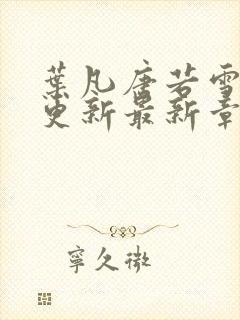 葉凡唐若雪
更新最新章
寧久微